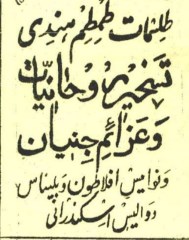 طلسمات طمطم هندی
تسخیر روحانیات
وعزائم جنیان
ونوامیس افلاطون و بلیناس
دوالیس اسکندرانی